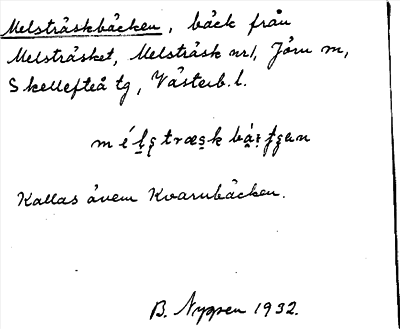 Melsträskbäcken, bäck från
Melsträsket, Melsträsk nr 1, Jörn sn,
Skellefteå tg, Västerb. l.
Kallas även Kvarnbäcken.
B. Nygren 1932.